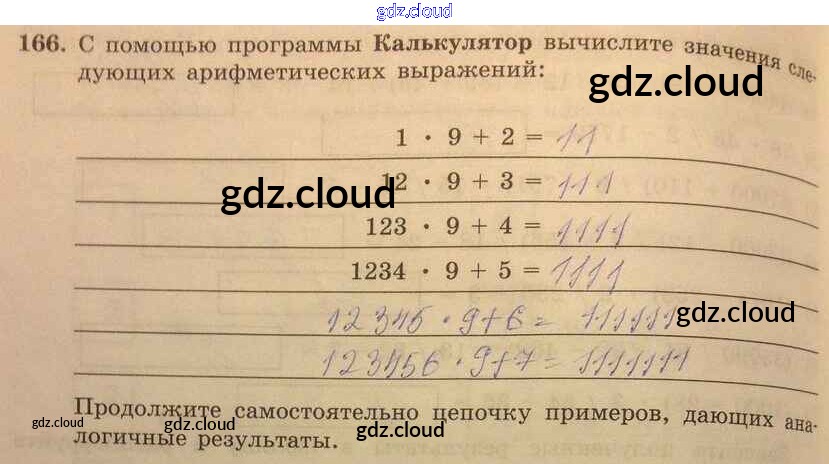 gdz.cloud
166. С помощью программы Калькулятор вычислите значения сле-
дующих арифметических выражений:
gdz.cloud
1 · 9 + 2 = 11
12 · 9 + 3 = 111
gdz.cloud
123 · 9 + 4 = 1111
1234 · 9 + 5 = 1111
12345 · 9+6 = 111111
gdz.cloud
123456 · 9+7 = 1111111
Продолжите самостоятельно цепочку примеров, дающих ана-
логичные результаты.
gdz.cloud
gdz.cloud
gdz.cloud